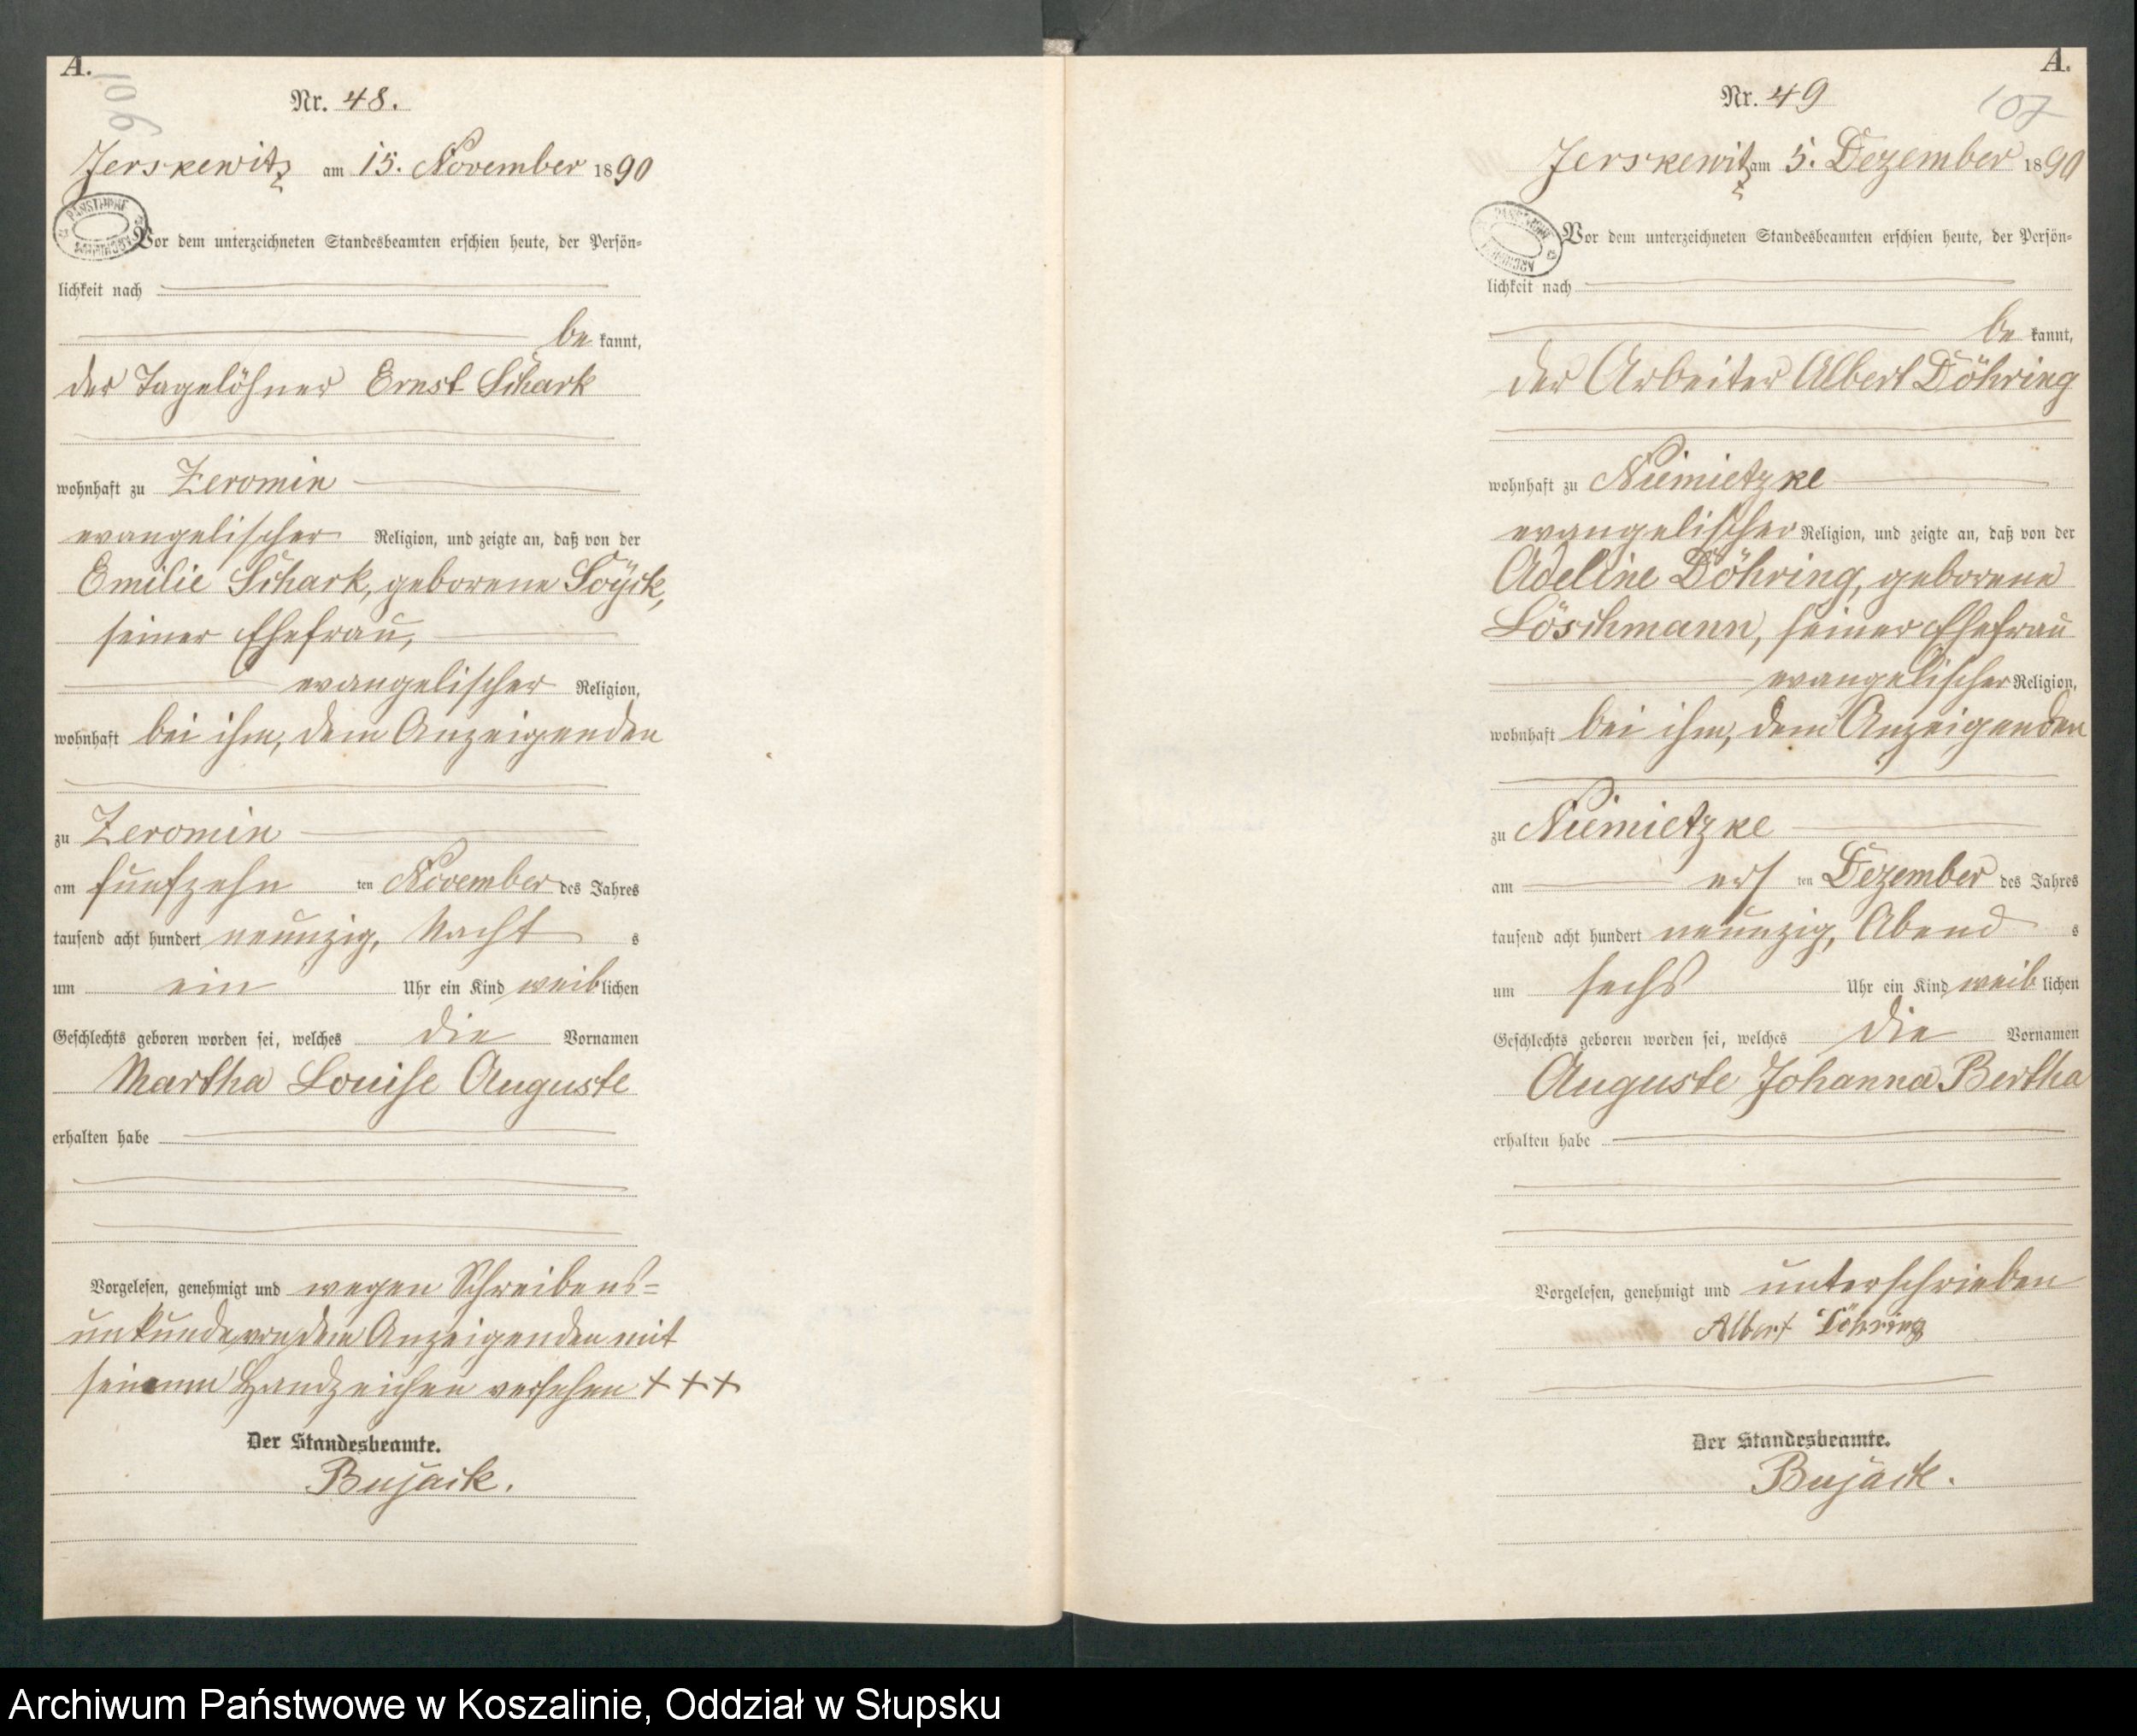 A.
106
Nr. 48.
Jerskewitz am 15. November 1890
Vor dem unterzeichneten Standesbeamten erschien heute, der Persön-
lichkeit nach
be kannt,
der Tagelöhner Ernst Schark
wohnhaft zu Zeromin
evangelischer Religion, und zeigte an, daß von der
Emilie Schark, geborene Söyck,
seiner Ehefrau,
evangelischer Religion,
wohnhaft bei ihm, dem Anzeigenden
zu Zeromin
am fünfzehn ten November des Jahres
tausend acht hundert neunzig, Nacht s
um ein Uhr ein Kind weiblichen
Geschlechts geboren worden sei, welches die Vornamen
Martha Louise Auguste
erhalten habe
Vorgelesen, genehmigt und wegen Schreibens-
unkunde von dem Anzeigenden mit
seinem Handzeichen versehen +++
Der Standesbeamte.
Bujack.
A.
107
Nr. 49
Jerskewitz am 5. Dezember 1890
Vor dem unterzeichneten Standesbeamten erschien heute, der Persön-
lichkeit nach
be kannt,
der Arbeiter Albert Döhring
wohnhaft zu Niemietzke
evangelischer Religion, und zeigte an, daß von der
Adeline Döhring, geborene
Löschmann, seiner Ehefrau
evangelischer Religion,
wohnhaft bei ihm, dem Anzeigenden
zu Niemietzke
am ers ten Dezember des Jahres
tausend acht hundert neunzig, Abend s
um sechs Uhr ein Kind weib lichen
Geschlechts geboren worden sei, welches die Vornamen
Auguste Johanna Bertha
erhalten habe
Vorgelesen, genehmigt und unterschrieben
Albert Döhring
Der Standesbeamte.
Bujack.
Archiwum Państwowe w Koszalinie, Oddział w Słupsku